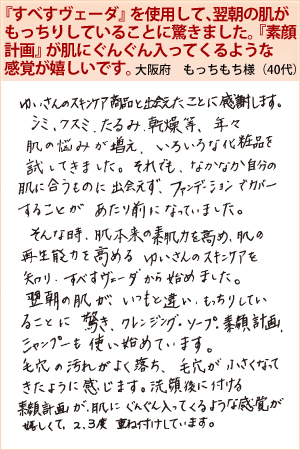 『すべすヴェーダ』を使用して、翌朝の肌が
もっちりしていることに驚きました。『素顔
計画』が肌にぐんぐん入ってくるような
感覚が嬉しいです。大阪府 もっちもち様（40代）
ゆいさんのスキンケア商品と出会えたことに感謝します。
シミ、クスミ、たるみ、乾燥等、年々
肌の悩みが増え、いろいろな化粧品を
試してきました。それでも、なかなか自分の
肌に合うものに出会えず、ファンデーションでカバー
することが あたり前になっていました。
そんな時、肌本来の素肌力を高め、肌の
再生能力を高める ゆいさんのスキンケアを
知り、すべすヴェーダから始めました。
翌朝の肌が、いつもと違い、もっちりしてい
ることに 驚き、クレンジング・ソープ、素顔計画、
シャンプーも使い始めています。
毛穴の汚れがよく落ち、毛穴が小さくなって
きたように感じます。洗顔後に付ける
素顔計画が、肌に ぐんぐん入ってくるような感覚が
嬉しくて、2、3度 重ね付けしています。